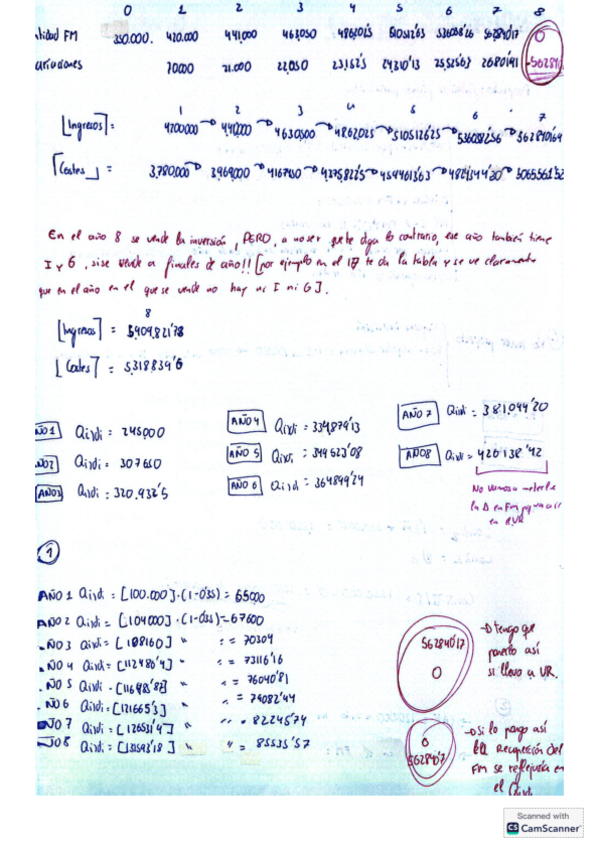 0 1 2 3 4 5 6 7 8
FM 350.000. 420.000 441.000 463050 486202'5 510512'63 562840'17 0
70000 21.000 22.050 23152'5 24310'13 26801'91 -56284
1 2 3 4 5 6 7
[Ingresos] = 4200000 4.410.000 4630500 4862025 5105126'25 5628401'64
[Costes] = 3.780.000 3.969.000 4167450 4594613'63 5065561'52
En el año 8 se vende la inversión, PERO, a no ser que te diga lo contrario, ese año también tiene
I y G, si se vende a finales de año!! [por ejemplo en el 17 te da la tabla y se ve claramente
que en el año en el que se vende no hay ni I ni G].
8
[Ingresos] = 5.909.821'78
[Costes] = 5.318.839'6
AÑO 4 Qixdi = 334.879'13
AÑO 7 Qixdi = 381.044'20
ÑO1 Qixdi = 245000
AÑO 5 Qixdi = 349523'08
AÑO8 Qixdi = 420138'42
ÑO2 Qixdi = 307650
AÑO 6 Qixdi = 364899'24
AÑO3 Qixdi = 320.932'5
No vamos a meterle
la Δ en FM
en el VR
1
AÑO 1 Qixdi = [100.000]·(1-0'35) = 65000
AÑO 2 Qixdi = [104000]·(1-0'35) = 67600
ÑO 3 Qixdi = [108160] " = 70304
ÑO 4 Qixdi = [112486'4] " = 73116'16
ÑO 5 Qixdi = [116985'8] " = 76040'81
ÑO 6 Qixdi = [121665'3] " = 79082'44
ÑO 7 Qixdi = [126531'9] " = 82245'74
ÑO 8 Qixdi = [131593'18] " = 85535'57
562840'17
0
→ tengo que
ponerlo así
si llevo a VR.
0
562840'17
→ Si lo pongo así
la recuperación del
FM se reflejaría en
el Qixdi.
Scanned with
CS CamScanner